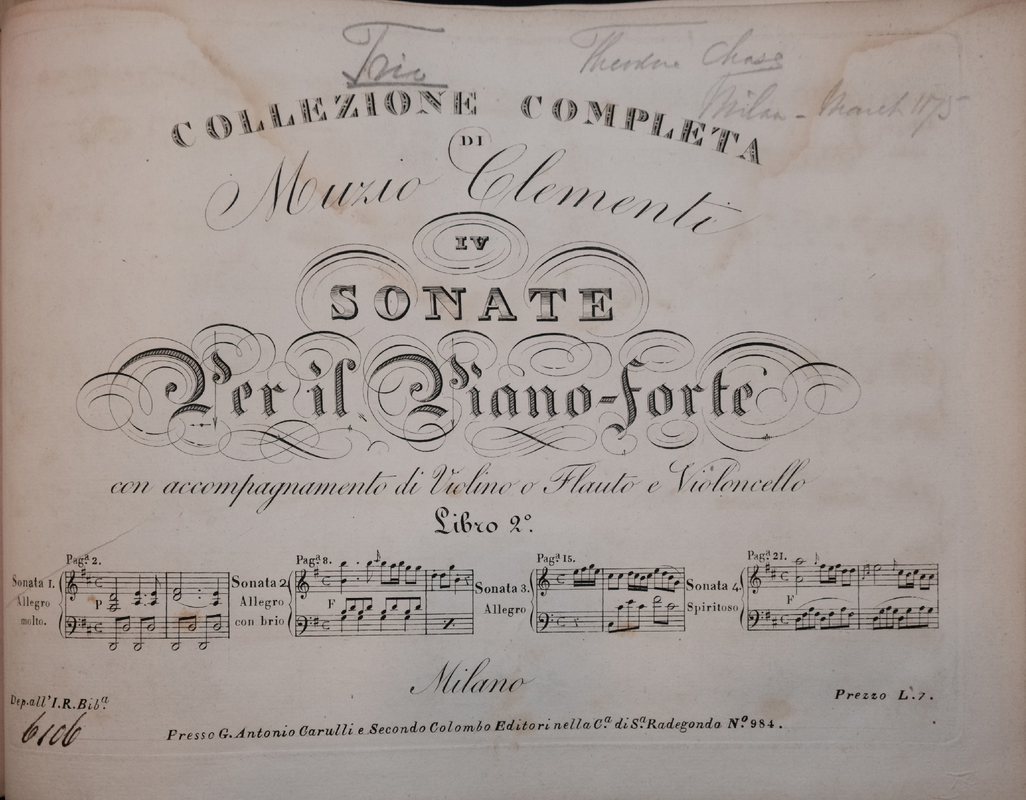 Trio
Theodore Chase
Milan - March 1875
COLLEZIONE COMPLETA
DI
Muzio Clementi
IV
SONATE
Per il Piano-forte
con accompagnamento di Violino o Flauto e Violoncello
Libro 2º.
Pagª. 2.
Sonata 1.
Allegro
molto.
P
Pagª. 8.
Sonata 2.
Allegro
con brio
F
Pagª. 15.
Sonata 3.
Allegro
Pagª. 21.
Sonata 4.
Spiritoso
F
Milano
Dep. all' I. R. Bibª.
Prezzo L. 7.
6106
Presso G. Antonio Carulli e Secondo Colombo Editori nella Cª. di Sª. Radegonda Nº. 984.